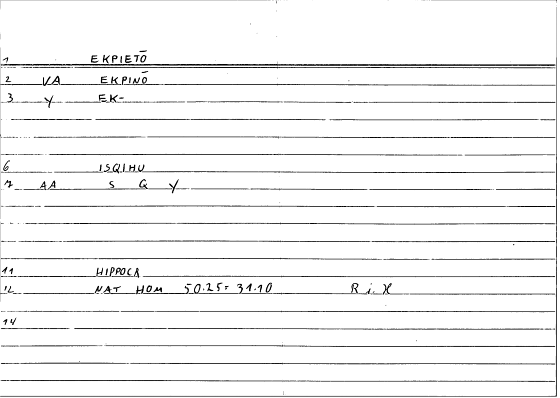 1 EKPIETŌ
2 VA EKPINŌ
3 Y EK-
6 ISQIHU
7 AA S Q Y
11 HIPPOCR
12 NAT HOM 50.25= 31.10 R i. H
14